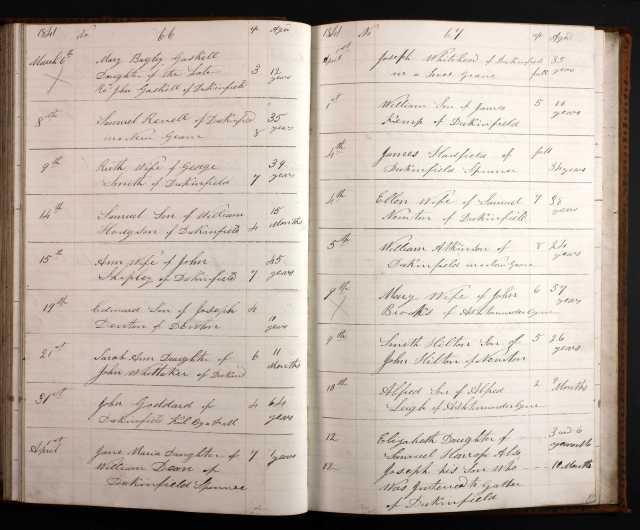 1841 No 66 Aged
March 6th Mary Bagly Gaskell
Daughter of the Late 3 12
Revd John Gaskell of Dukinfield years
8th Samuel Kenell of Dukinfield 35
8 years
9th Ruth Wife of George 39
Smith of Dukinfield 7 years
14th Samuel Son of William 15
Hodgson of Dukinfield 4 Months
15th Ann Wife of John 45
Shepley of Dukinfield 7 years
19th Edward Son of Joseph 4
Denton of Denton 10
years
21st Sarah Ann Daughter of 6 11
John Whittaker of Months
31st John Goddard of 4 64
Dukinfield years
April 1st Jane Maria Daughter of 7 years
William Dean of
Dukinfield Spinner
1841 No 67 Aged
April 1st Joseph Whitehead of Dukinfield 35
in a Grave full years
1st William Son of James 5 10
Kemp of Dukinfield years
4th James Hadfield of full
Dukinfield Spinner 34 years
4th Ellen Wife of Samuel 7 38
Newton of Dukinfield years
5th William Atkinson of 8 24
Dukinfield Grave years
9th Mary Wife of John 6 57
Brooks of Ashtonunderlyne years
9th Smith Hilton Son of 5 26
John Hilton of Newton years
10th Alfred Son of Alfred 2 9 Months
Leigh of Ashtonunderlyne
12 Elizabeth Daughter of 3 and 6
Samuel Harrop Also years
12 Joseph his Son Who 10 Months
Was Intered to Gather
of Dukinfield